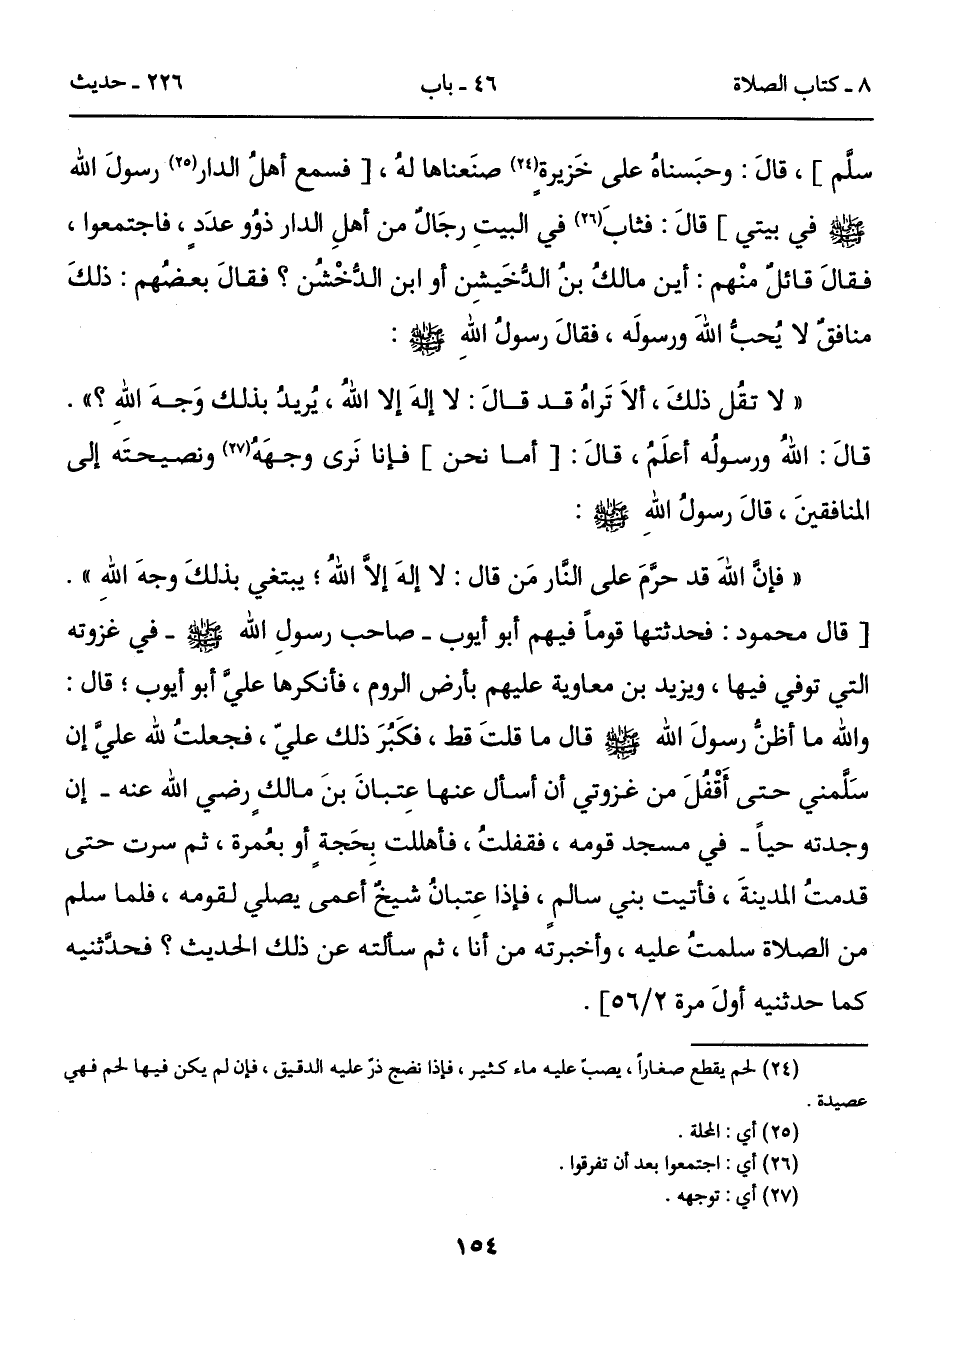 ٨ ـ كتاب الصلاة ٤٦ ـ باب ٢٢٦ ـ حديث
سلَّم ] ، قالَ : وحبَسناهُ على خَزيرةٍ(٢٤) صنَعناها لهُ ، [ فسمع أهلُ الدار(٢٥) رسولَ الله
ﷺ في بيتي ] قالَ : فثابَ(٢٦) في البيتِ رجَالٌ من أهلِ الدار ذوُو عدَدٍ ، فاجتمعوا ،
فقالَ قائلٌ منْهم : أين مالكُ بنُ الدُّخَيشنِ أو ابن الدُّخْشُن ؟ فقالَ بعضُهم : ذلكَ
منافقٌ لا يُحبُّ اللهَ ورسولَه ، فقالَ رسولُ اللهِ ﷺ :
« لا تقُل ذلكَ ، ألاَ تَراهُ قد قالَ : لا إلهَ إلا اللهُ ، يُريدُ بذلك وَجهَ اللهِ ؟» .
قالَ : اللهُ ورسولُه أعلَمُ ، قالَ : [ أما نحن ] فإنا نَرى وجهَهُ(٢٧) ونصيحتَه إلى
المنافقينَ ، قالَ رسولُ اللهِ ﷺ :
« فإنَّ اللهَ قد حرَّمَ على النَّار مَن قال : لا إلهَ إلاَّ اللهُ ؛ يبتغي بذلكَ وجهَ اللهِ » .
[ قال محمود : فحدثتها قوماً فيهم أبو أيوب ـ صاحب رسولِ الله ﷺ ـ في غزوته
التي توفي فيها ، ويزيد بن معاوية عليهم بأرض الروم ، فأنكرها عليَّ أبو أيوب ؛ قال :
والله ما أظنُّ رسولَ الله ﷺ قال ما قلتَ قط ، فكَبُرَ ذلك عليّ ، فجعلتُ لله عليَّ إن
سَلَّمني حتى أَقْفُلَ من غزوتي أن أسأل عنها عِتبانَ بنَ مالكٍ رضي الله عنه ـ إن
وجدته حياً ـ في مسجد قومه ، فقفلتُ ، فأهللت بِحَجةٍ أو بعُمرة ، ثم سرت حتى
قدمتُ المدينةَ ، فأتيت بني سالمٍ ، فإذا عِتبانُ شيخٌ أعمى يصلي لقومه ، فلما سلم
من الصلاة سلمتُ عليه ، وأخبرته من أنا ، ثم سألته عن ذلك الحديث ؟ فحدَّثنيه
كما حدثنيه أولَ مرة ٢/٥٦] .
(٢٤) لحم يقطع صغاراً ، يصبّ عليه ماء كثير ، فإذا نضج ذرّ عليه الدقيق ، فإن لم يكن فيها لحم فهي
عصيدة .
(٢٥) أي : المحلة .
(٢٦) أي : اجتمعوا بعد أن تفرقوا .
(٢٧) أي : توجهه .
١٥٤